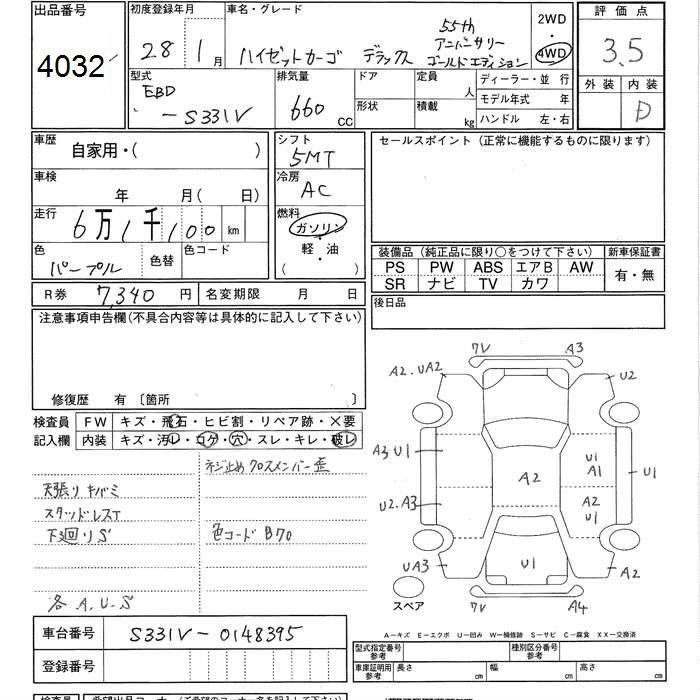 出品番号
4032
初度登録年月
28年1月
車名・グレード
ハイゼットカーゴ デラックス 55th アニバーサリー ゴールドエディション
2WD・4WD
評価点
3.5
外装 内装
D
型式
EBD
-S331V
排気量
660 CC
ドア
形状
定員 人
積載 kg
ディーラー・並行
モデル年式 年
ハンドル 左・右
車歴 自家用・( )
シフト
5MT
セールスポイント (正常に機能するものに限ります)
車検 年 月( 日)
冷房
AC
走行 6万1千100 km
燃料
ガソリン
軽・油
( )
色
パープル
色替
色コード
装備品(純正品に限り○をつけて下さい)
新車保証書
PS PW ABS エアB AW
SR ナビ TV カワ
有・無
R券 7,340円
名変期限 月 日
後日品
注意事項申告欄(不具合内容等は具体的に記入して下さい)
修復歴 有 〔箇所 〕
検査員 FW キズ・飛石・ヒビ割・リペア跡・×要
記入欄 内装 キズ・汚レ・コゲ・穴・スレ・キレ・破レ
ネジ止めクロスメンバー歪
天張りキバミ
スタッドレスT
下廻りS
色コードB70
各A,U,S
7V A3
A2.UA2 U2
A3 U1
U1
A1
A2
U1
U2.A3
A2
U1
UA3
U1
A2
スペア
7V A4
車台番号 S331V-0148395
登録番号
A-キズ E-エクボ U-凹み W-補修跡 S-サビ C-腐食 XX-交換済
型式指定番号
参考
種別区分番号
参考
車庫証明用
参考
長さ cm 幅 cm 高さ cm